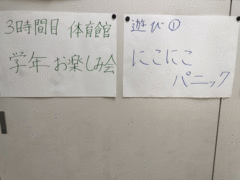 3時間目 体育館
学年 お楽しみ会
遊び①
にこにこ
パニック